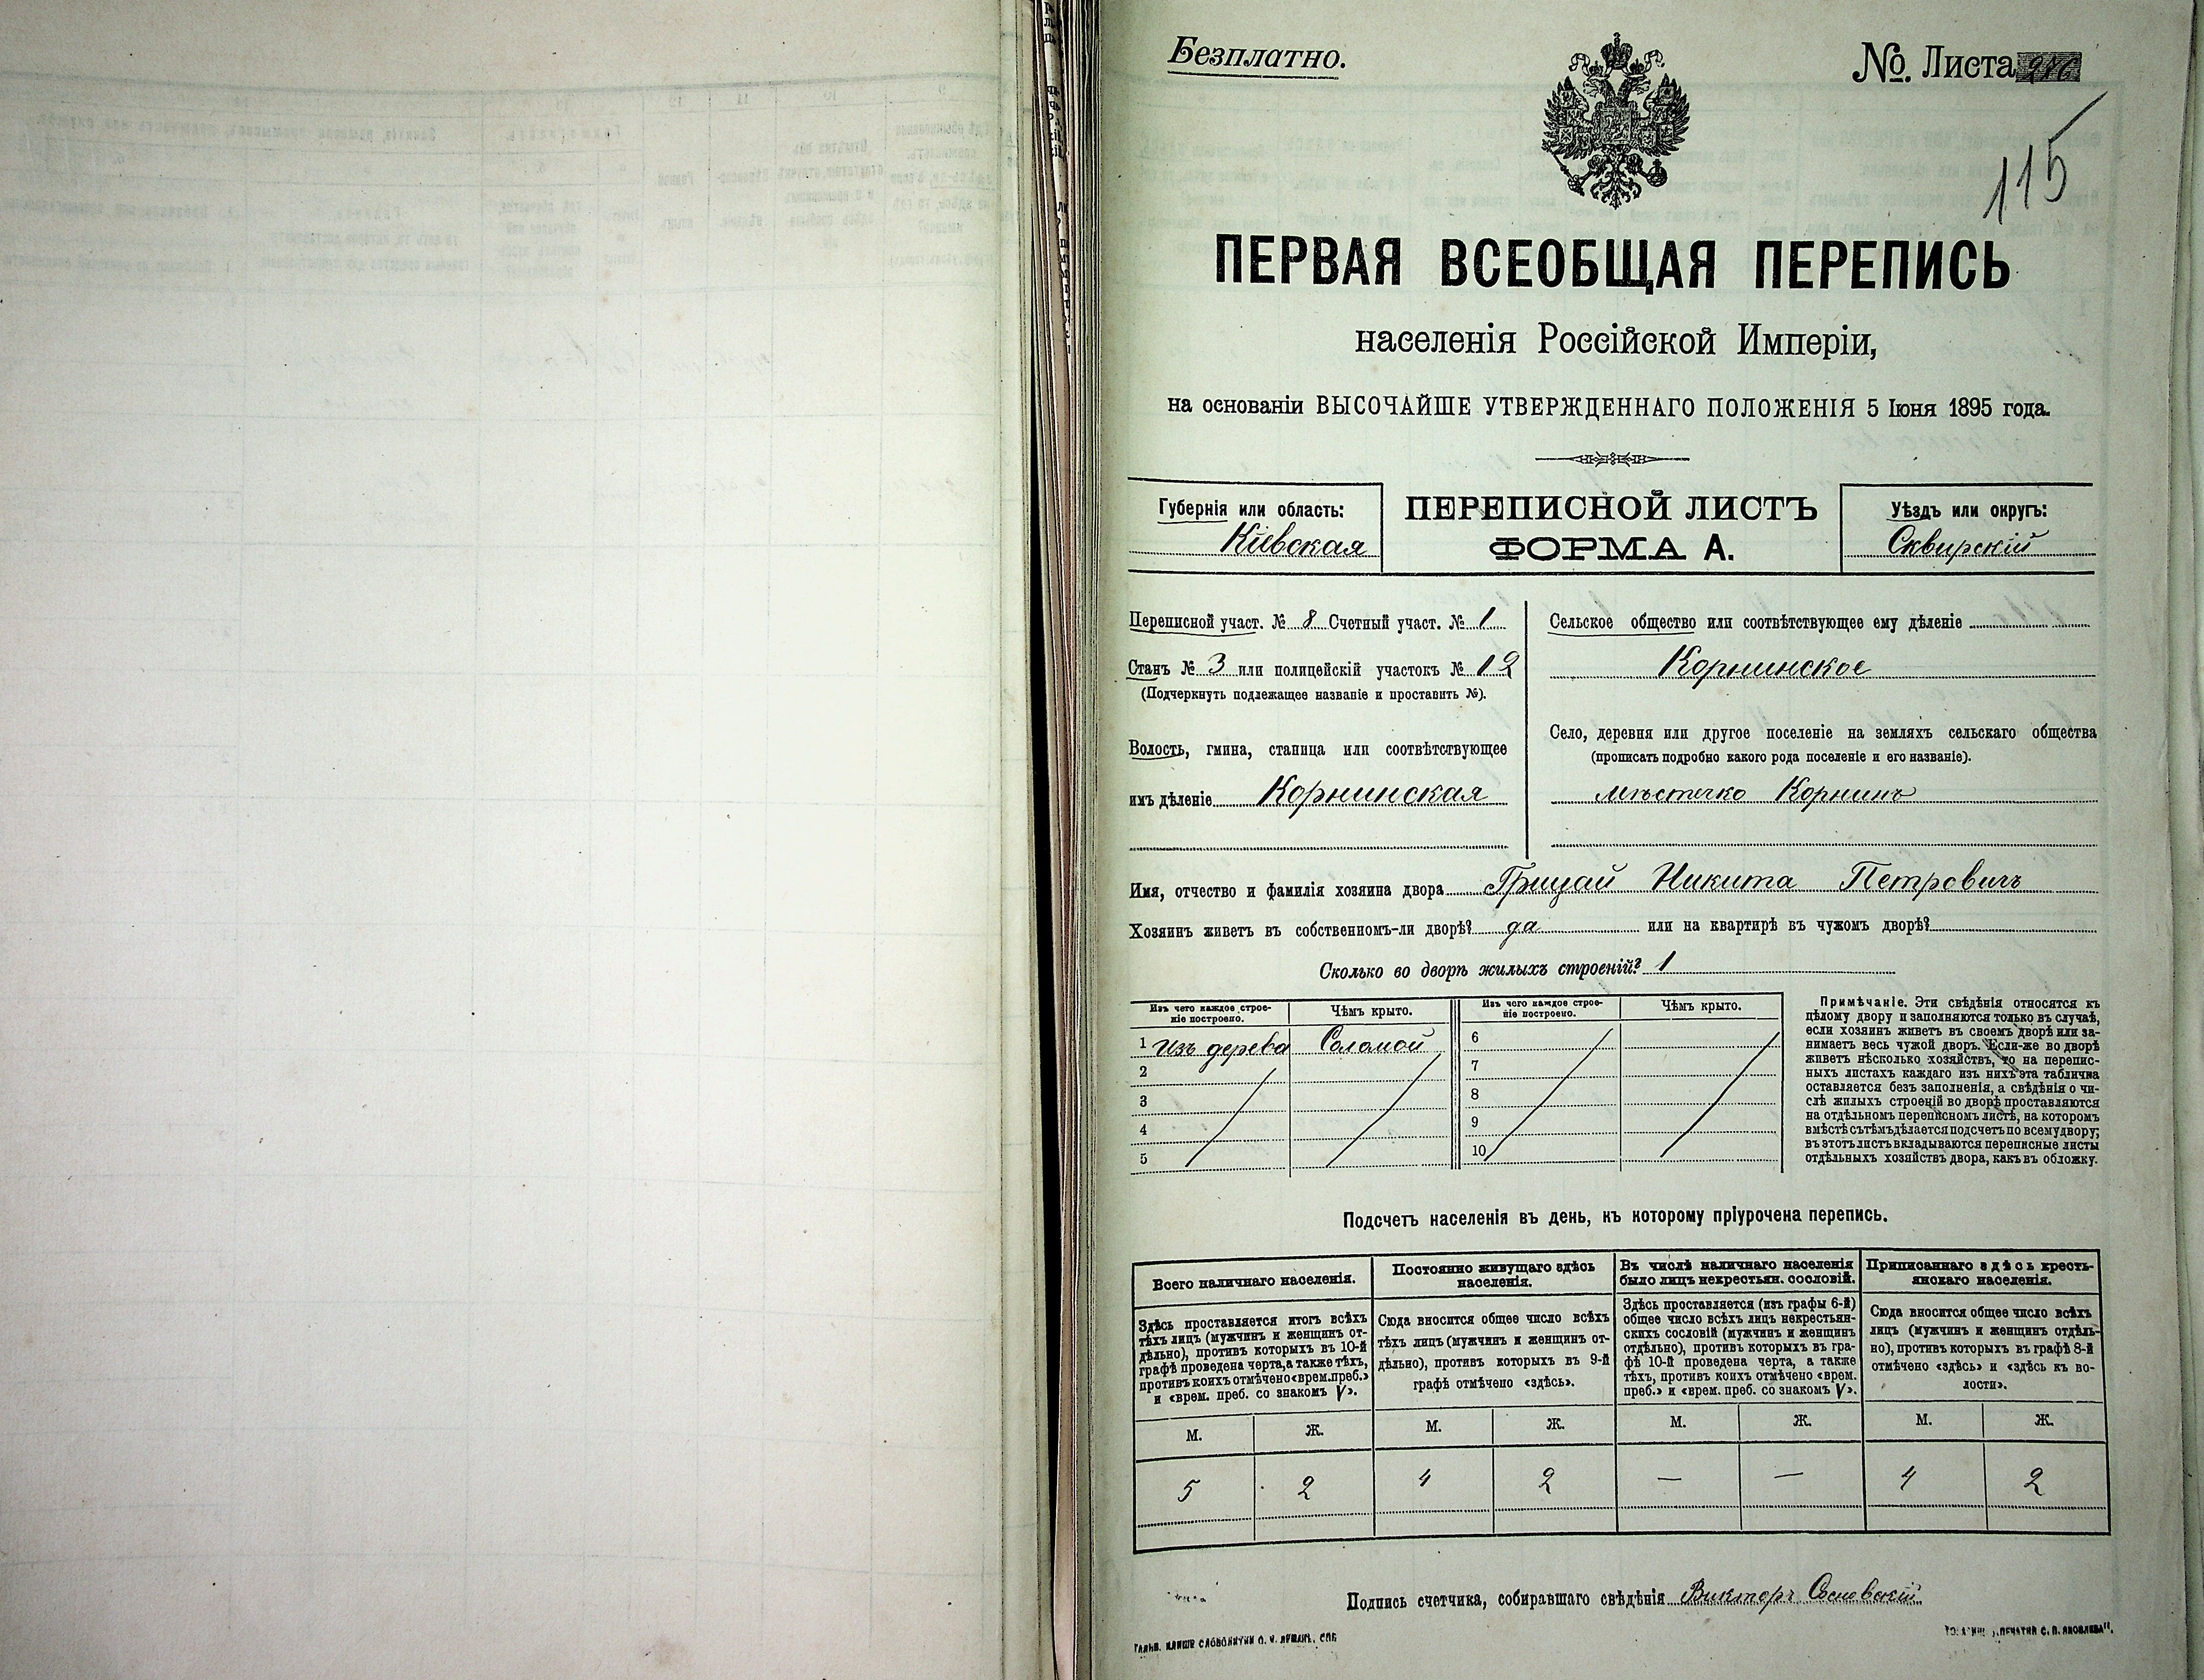 Безплатно.
№. Листа
115
ПЕРВАЯ ВСЕОБЩАЯ ПЕРЕПИСЬ
населенія Россійской Имперіи,
на основаніи ВЫСОЧАЙШЕ УТВЕРЖДЕННАГО ПОЛОЖЕНІЯ 5 Іюня 1895 года.
Губернія или область:
Кіевская
ПЕРЕПИСНОЙ ЛИСТЪ
ФОРМА А.
Уѣздъ или округъ:
Сквирскій
Переписной участ. № 8 Счетный участ. № 1
Станъ № 3 или полицейскій участокъ № 12
(Подчеркнуть подлежащее названіе и проставить №).
Волость, гмина, станица или соотвѣтствующее
имъ дѣленіе Корнинская
Сельское общество или соотвѣтствующее ему дѣленіе
Корнинское
Село, деревня или другое поселеніе на земляхъ сельскаго общества
(прописать подробно какого рода поселеніе и его названіе).
мѣстечко Корнинъ
Имя, отчество и фамилія хозяина двора Грицай Никита Петровичъ
Хозяинъ живетъ въ собственномъ-ли дворѣ? да или на квартирѣ въ чужомъ дворѣ?
Сколько во дворѣ жилыхъ строеній? 1
Изъ чего каждое строе-
ніе построено.
Чѣмъ крыто.
Изъ чего каждое строе-
ніе построено.
Чѣмъ крыто.
1 Изъ дерева Соломой
2
3
4
5
6
7
8
9
10
Примѣчаніе. Эти свѣдѣнія относятся къ
цѣлому двору и заполняются только въ случаѣ,
если хозяинъ живетъ въ своемъ дворѣ или за-
нимаетъ весь чужой дворъ. Если-же во дворѣ
живетъ нѣсколько хозяйствъ, то на перепис-
ныхъ листахъ каждаго изъ нихъ эта табличка
оставляется безъ заполненія, а свѣдѣнія о чи-
слѣ жилыхъ строеній во дворѣ проставляются
на отдѣльномъ переписномъ листѣ, на которомъ
вмѣстѣ съ тѣмъ дѣлается подсчетъ по всему двору;
въ этотъ листъ вкладываются переписные листы
отдѣльныхъ хозяйствъ двора, какъ въ обложку.
Подсчетъ населенія въ день, къ которому пріурочена перепись.
Всего наличнаго населенія.
Здѣсь проставляется итогъ всѣхъ
тѣхъ лицъ (мужчинъ и женщинъ от-
дѣльно), противъ которыхъ въ 10-й
графѣ проведена черта, а также тѣхъ,
противъ коихъ отмѣчено «врем. преб.»
и «врем. преб. со знакомъ V».
Постоянно живущаго здѣсь
населенія.
Сюда вносится общее число всѣхъ
тѣхъ лицъ (мужчинъ и женщинъ от-
дѣльно), противъ которыхъ въ 9-й
графѣ отмѣчено «здѣсь».
Въ числѣ наличнаго населенія
было лицъ некрестьян. сословій.
Здѣсь проставляется (изъ графы 6-й)
общее число всѣхъ лицъ некрестьян-
скихъ сословій (мужчинъ и женщинъ
отдѣльно), противъ которыхъ въ гра-
фѣ 10-й проведена черта, а также
тѣхъ, противъ коихъ отмѣчено «врем.
преб.» и «врем. преб. со знакомъ V».
Приписаннаго здѣсь кресть-
янскаго населенія.
Сюда вносится общее число всѣхъ
лицъ (мужчинъ и женщинъ отдѣль-
но), противъ которыхъ въ графѣ 8-й
отмѣчено «здѣсь» и «здѣсь къ во-
лости».
М. Ж. М. Ж. М. Ж. М. Ж.
5 2 4 2 — — 4 2
Подпись счетчика, собиравшаго свѣдѣнія Викторъ Сосновскій